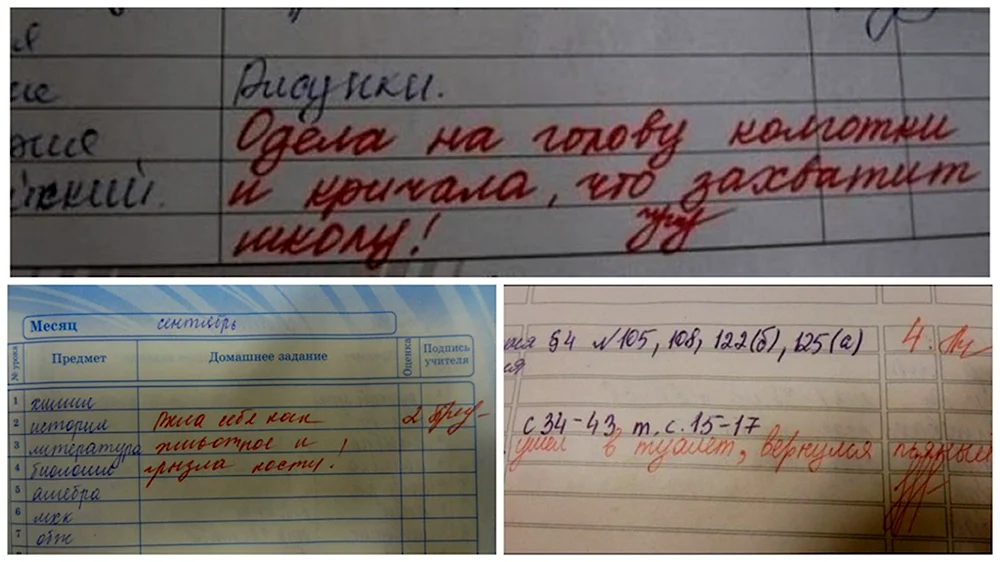 ие Рисунки.
Одела на голову колготки
и кричала, что захватит
школу!
Месяц сентябрь
№ урока Предмет Домашнее задание Оценка Подпись учителя
1 химия
2 история Вела себя как 2
3 литература животное и
4 биология грызла кости!
5 алгебра
6 мхк
7 обж
§4 №105, 108, 122(б), 125(а) 4
с 34-43 т. с. 15-17
ушел в туалет, вернулся пьяный